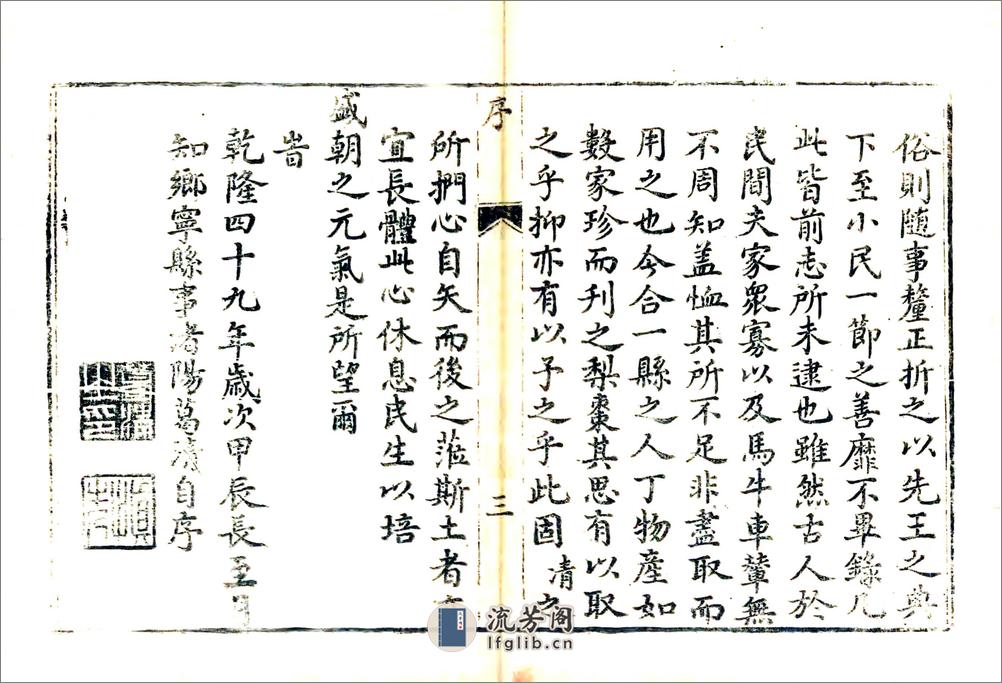 俗則隨事釐正折之以先王之典
下至小民一節之善靡不畢錄凡
此皆前志所未逮也雖然古人於
民間夫家衆寡以及馬牛車輦無
不周知盖恤其所不足非盡取而
用之也今合一縣之人丁物產如
數家珍而刋之梨棗其思有以取
之乎抑亦有以予之乎此固清之
序
三
所捫心自矢而後之蒞斯土者
宜長體此心休息民生以培
盛朝之元氣是所望爾
旹
乾隆四十九年歲次甲辰長至月
知鄉寧縣事渚陽葛清自序
流芳阁
lfglib.cn